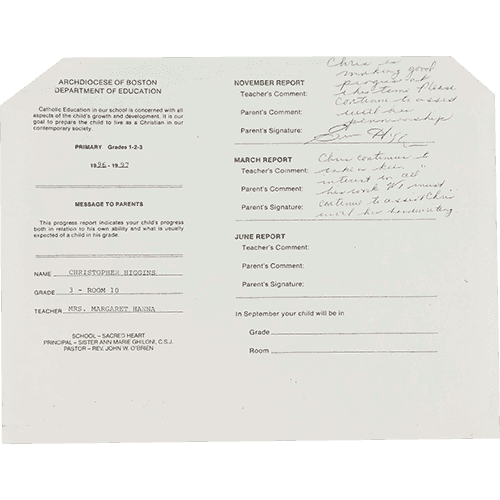 ARCHDIOCESE OF BOSTON
DEPARTMENT OF EDUCATION
Catholic Education in our school is concerned with all
aspects of the child's growth and development. It is our
goal to prepare the child to live as a Christian in our
contemporary society.
PRIMARY Grades 1-2-3
1996 - 1997
MESSAGE TO PARENTS
This progress report indicates your child's progress
both in relation to his own ability and what is usually
expected of a child in his grade.
NAME CHRISTOPHER HIGGINS
GRADE 3 - ROOM 10
TEACHER MRS. MARGARET HANNA
SCHOOL – SACRED HEART
PRINCIPAL – SISTER ANN MARIE GHILONI, C.S.J.
PASTOR – REV. JOHN W. O'BRIEN
Chris is
making good
NOVEMBER REPORT progress
Teacher's Comment: this term. Please
Parent's Comment: continue to assist
with his
penmanship
Parent's Signature:
MARCH REPORT Chris continues to
Teacher's Comment: take a keen
interest in all
Parent's Comment: his work. We must
Parent's Signature: continue to assist Chris
with his handwriting.
JUNE REPORT
Teacher's Comment:
Parent's Comment:
Parent's Signature:
In September your child will be in
Grade
Room